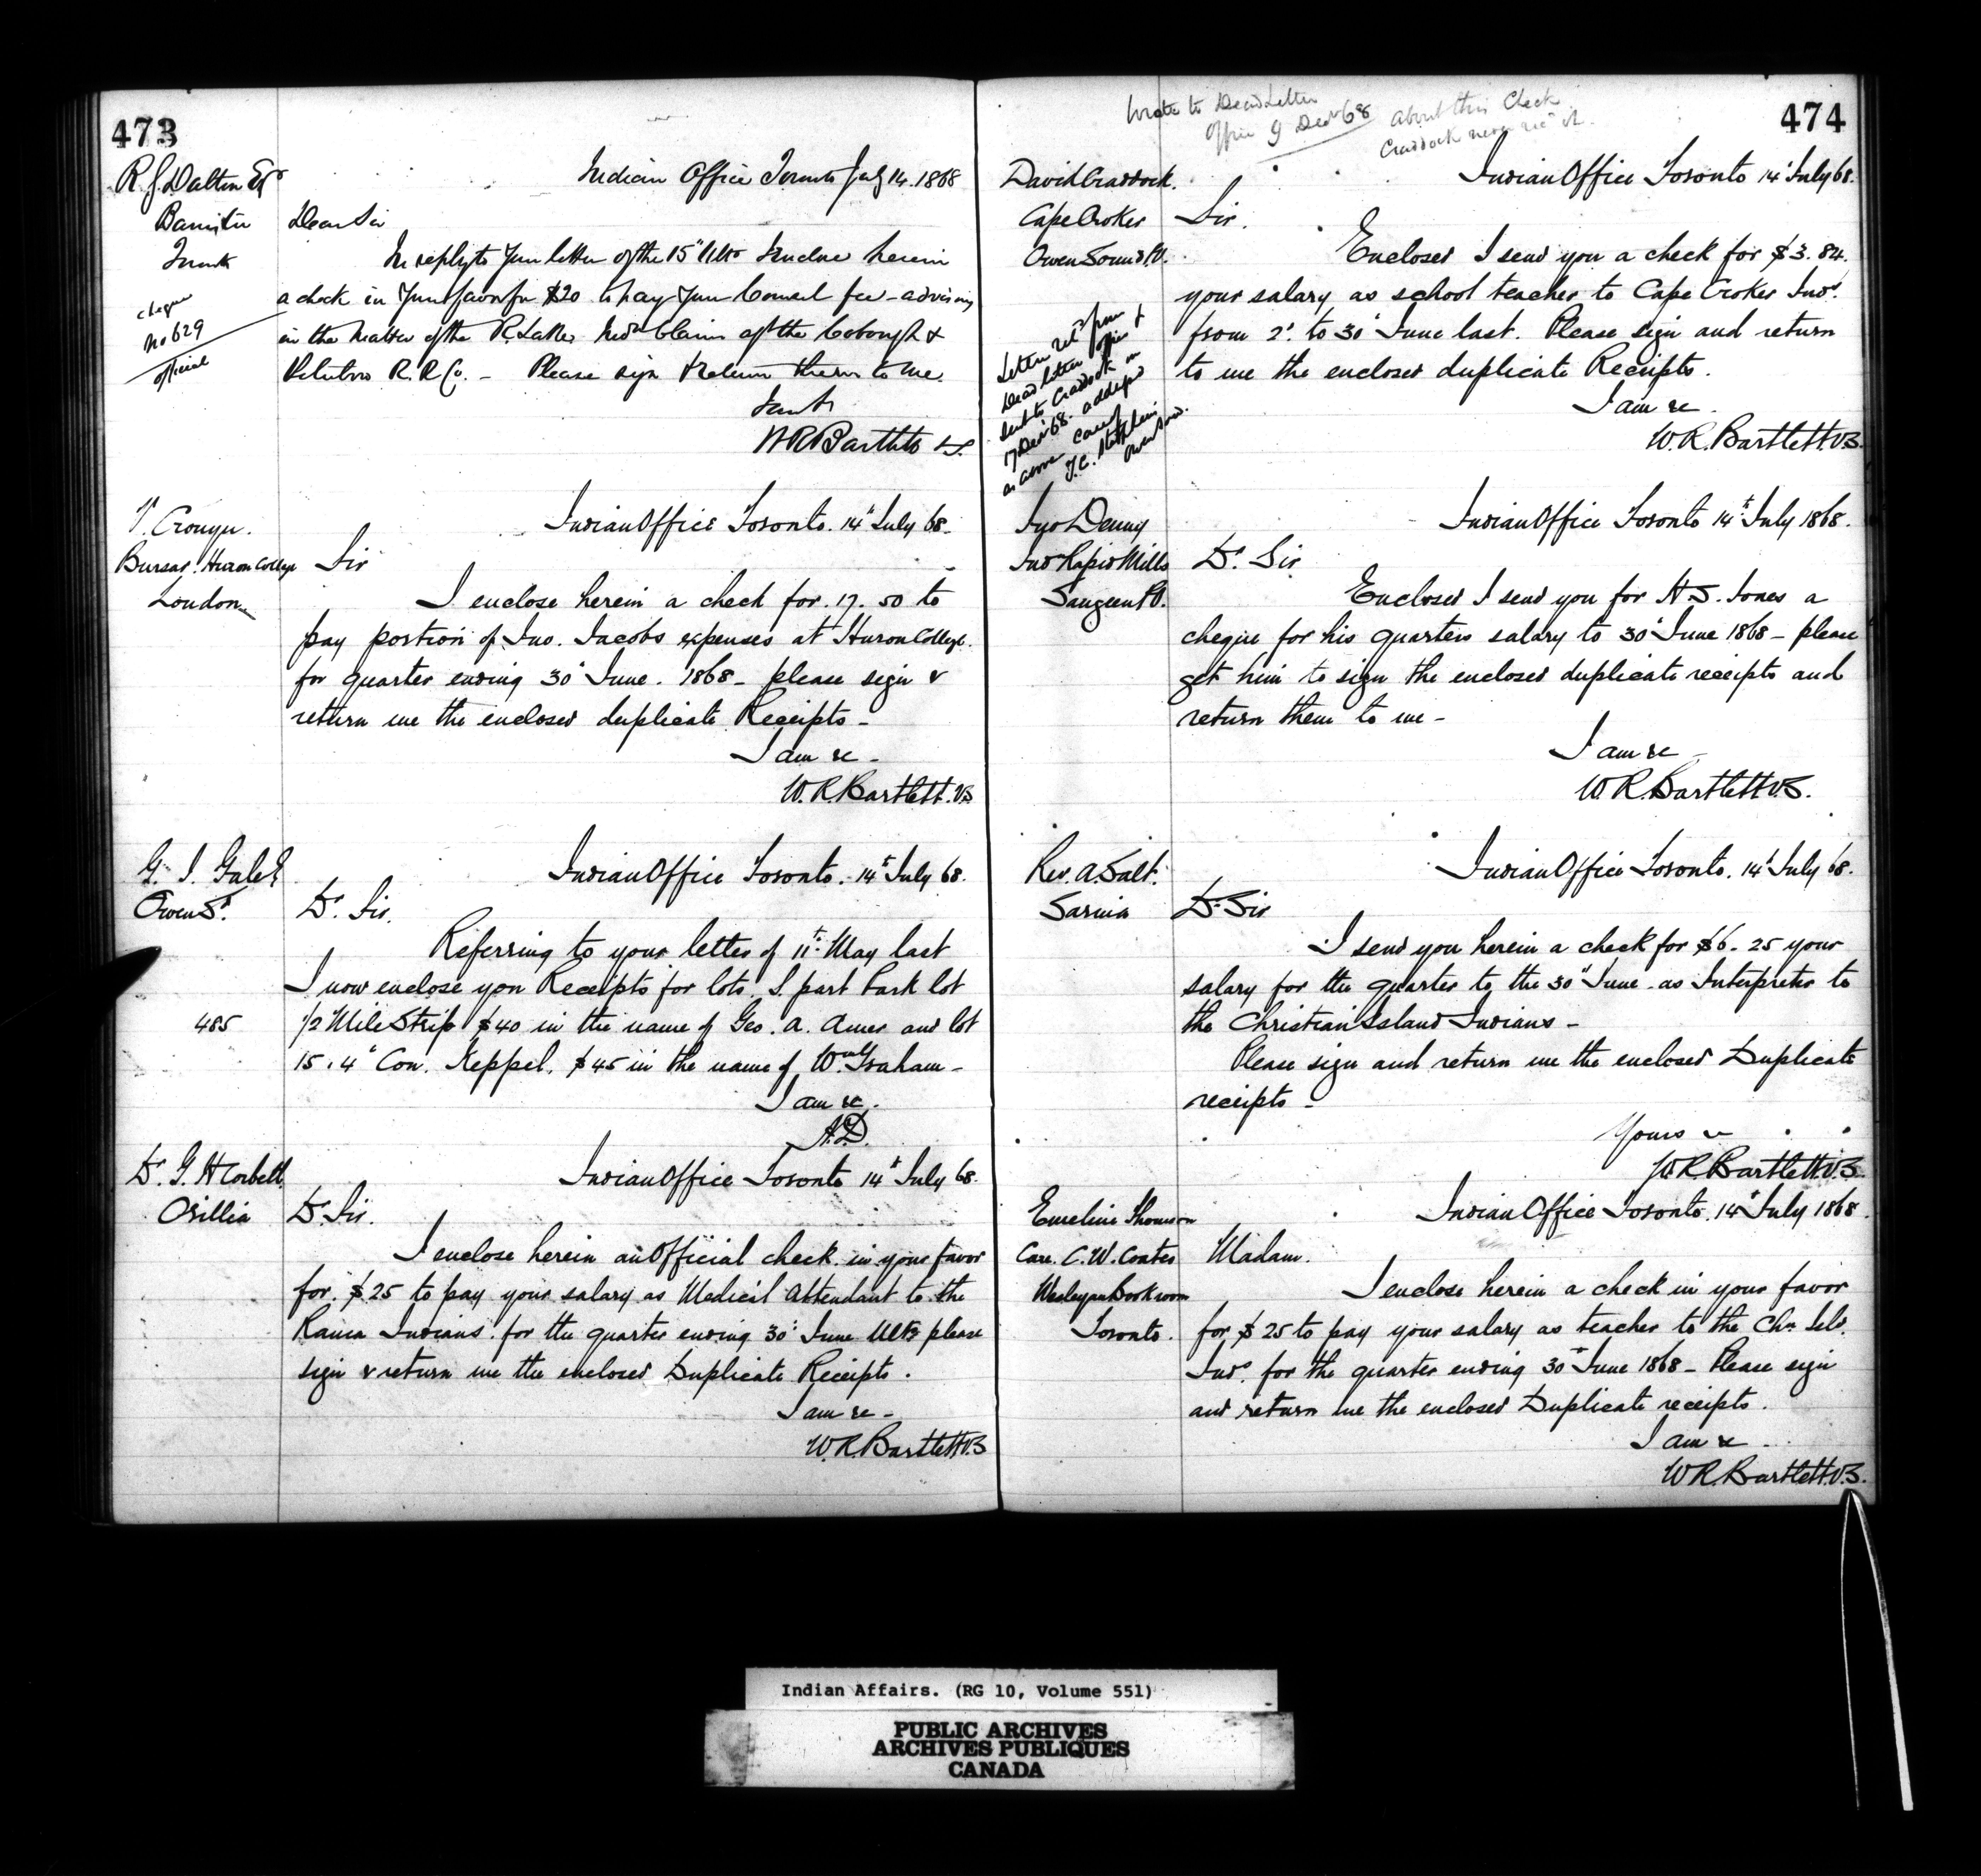 473
R. J. Dalton Esqr
Barrister
Toronto
cheque
No 629
official
Indian Office Toronto July 14. 1868
Dear Sir
In reply to your letter of the 15" Ulto I enclose herein
a check in your favor for $20 to pay your Counsel fee - advising
in the matter of the R. Lake Inds Claim agt the Cobourgh &
Peterboro R.R Co. - Please sign & return them to me.
W R Bartlett
T. Cronyn.
Bursar. Huron College
London
Indian Office Toronto. 14th July 68.
Sir
I enclose herein a check for. 17. 50 to
pay portion of Jno. Jacobs expenses at Huron College.
for quarter ending 30" June. 1868 - please sign &
return me the enclosed duplicate Receipts -
I am &c -
W. R. Bartlett. V.S
G. J. Gale E
Owen Sd.
485
Indian Office Toronto. 14th July 68.
Dr. Sir.
Referring to your letter of 11th May last
I now enclose you Receipts for lots. S. part Park lot
1/2 Mile Strip $40 in the name of Geo. A. Ames and lot
15. 4" Con. Keppel. $45 in the name of Wm Graham -
I am &c.
Dr. G. H Corbett.
Orillia
Indian Office Toronto 14th July 68.
Dr. Sir.
I enclose herein an Official check in your favor
for. $25 to pay your salary as Medical Attendant to the
Rama Indians. for the quarter ending 30" June Ulto please
sign & return me the enclosed Duplicate Receipts.
I am &c -
W. R. Bartlett V.S
474
Wrote to Dead Letter
Office 9 Decr 68
About this Check
Craddock never recd it.
David Craddock.
Cape Croker
Owen Sound P.O.
Letter recd from
Dead letter office &
sent to Craddock on
17 Decr 68. addressed
as above care of
Owen Sound.
Indian Office Toronto 14 July 68.
Sir.
Enclosed I send you a check for $3. 84.
your salary as school teacher to Cape Croker Inds.
from 2d. to 30" June last. Please sign and return
to me the enclosed duplicate Receipts.
I am &c.
W. R. Bartlett. V.S.
Jno Denny
Indn Rapid Mills
Saugeen P.O.
Indian Office Toronto 14th July 1868.
Dr. Sir
Enclosed I send you for H S. Jones a
cheque for his quarters salary to 30" June 1868 - please
get him to sign the enclosed duplicate receipts and
return them to me -
I am &c -
W. R. Bartlett V.S.
Rev. A. Salt.
Sarnia
Indian Office Toronto. 14th July 68.
Dr Sir
I send you herein a check for $6. 25 your
salary for the quarter to the 30" June. as Interpreter to
the Christian Island Indians -
Please sign and return me the enclosed Duplicate
receipts -
Yours &c
W. R. Bartlett. V.S.
Emeline Thomson
Care. C. W. Coates
Wesleyan Book room
Toronto.
Indian Office Toronto. 14th July 1868.
Madam.
I enclose herein a check in your favor
for $25 to pay your salary as teacher to the Chn Isld.
Inds. for the quarter ending 30" June 1868 - Please sign
and return me the enclosed Duplicate receipts.
I am &c -
W R. Bartlett. V.S.
Indian Affairs. (RG 10, Volume 551)
PUBLIC ARCHIVES
ARCHIVES PUBLIQUES
CANADA